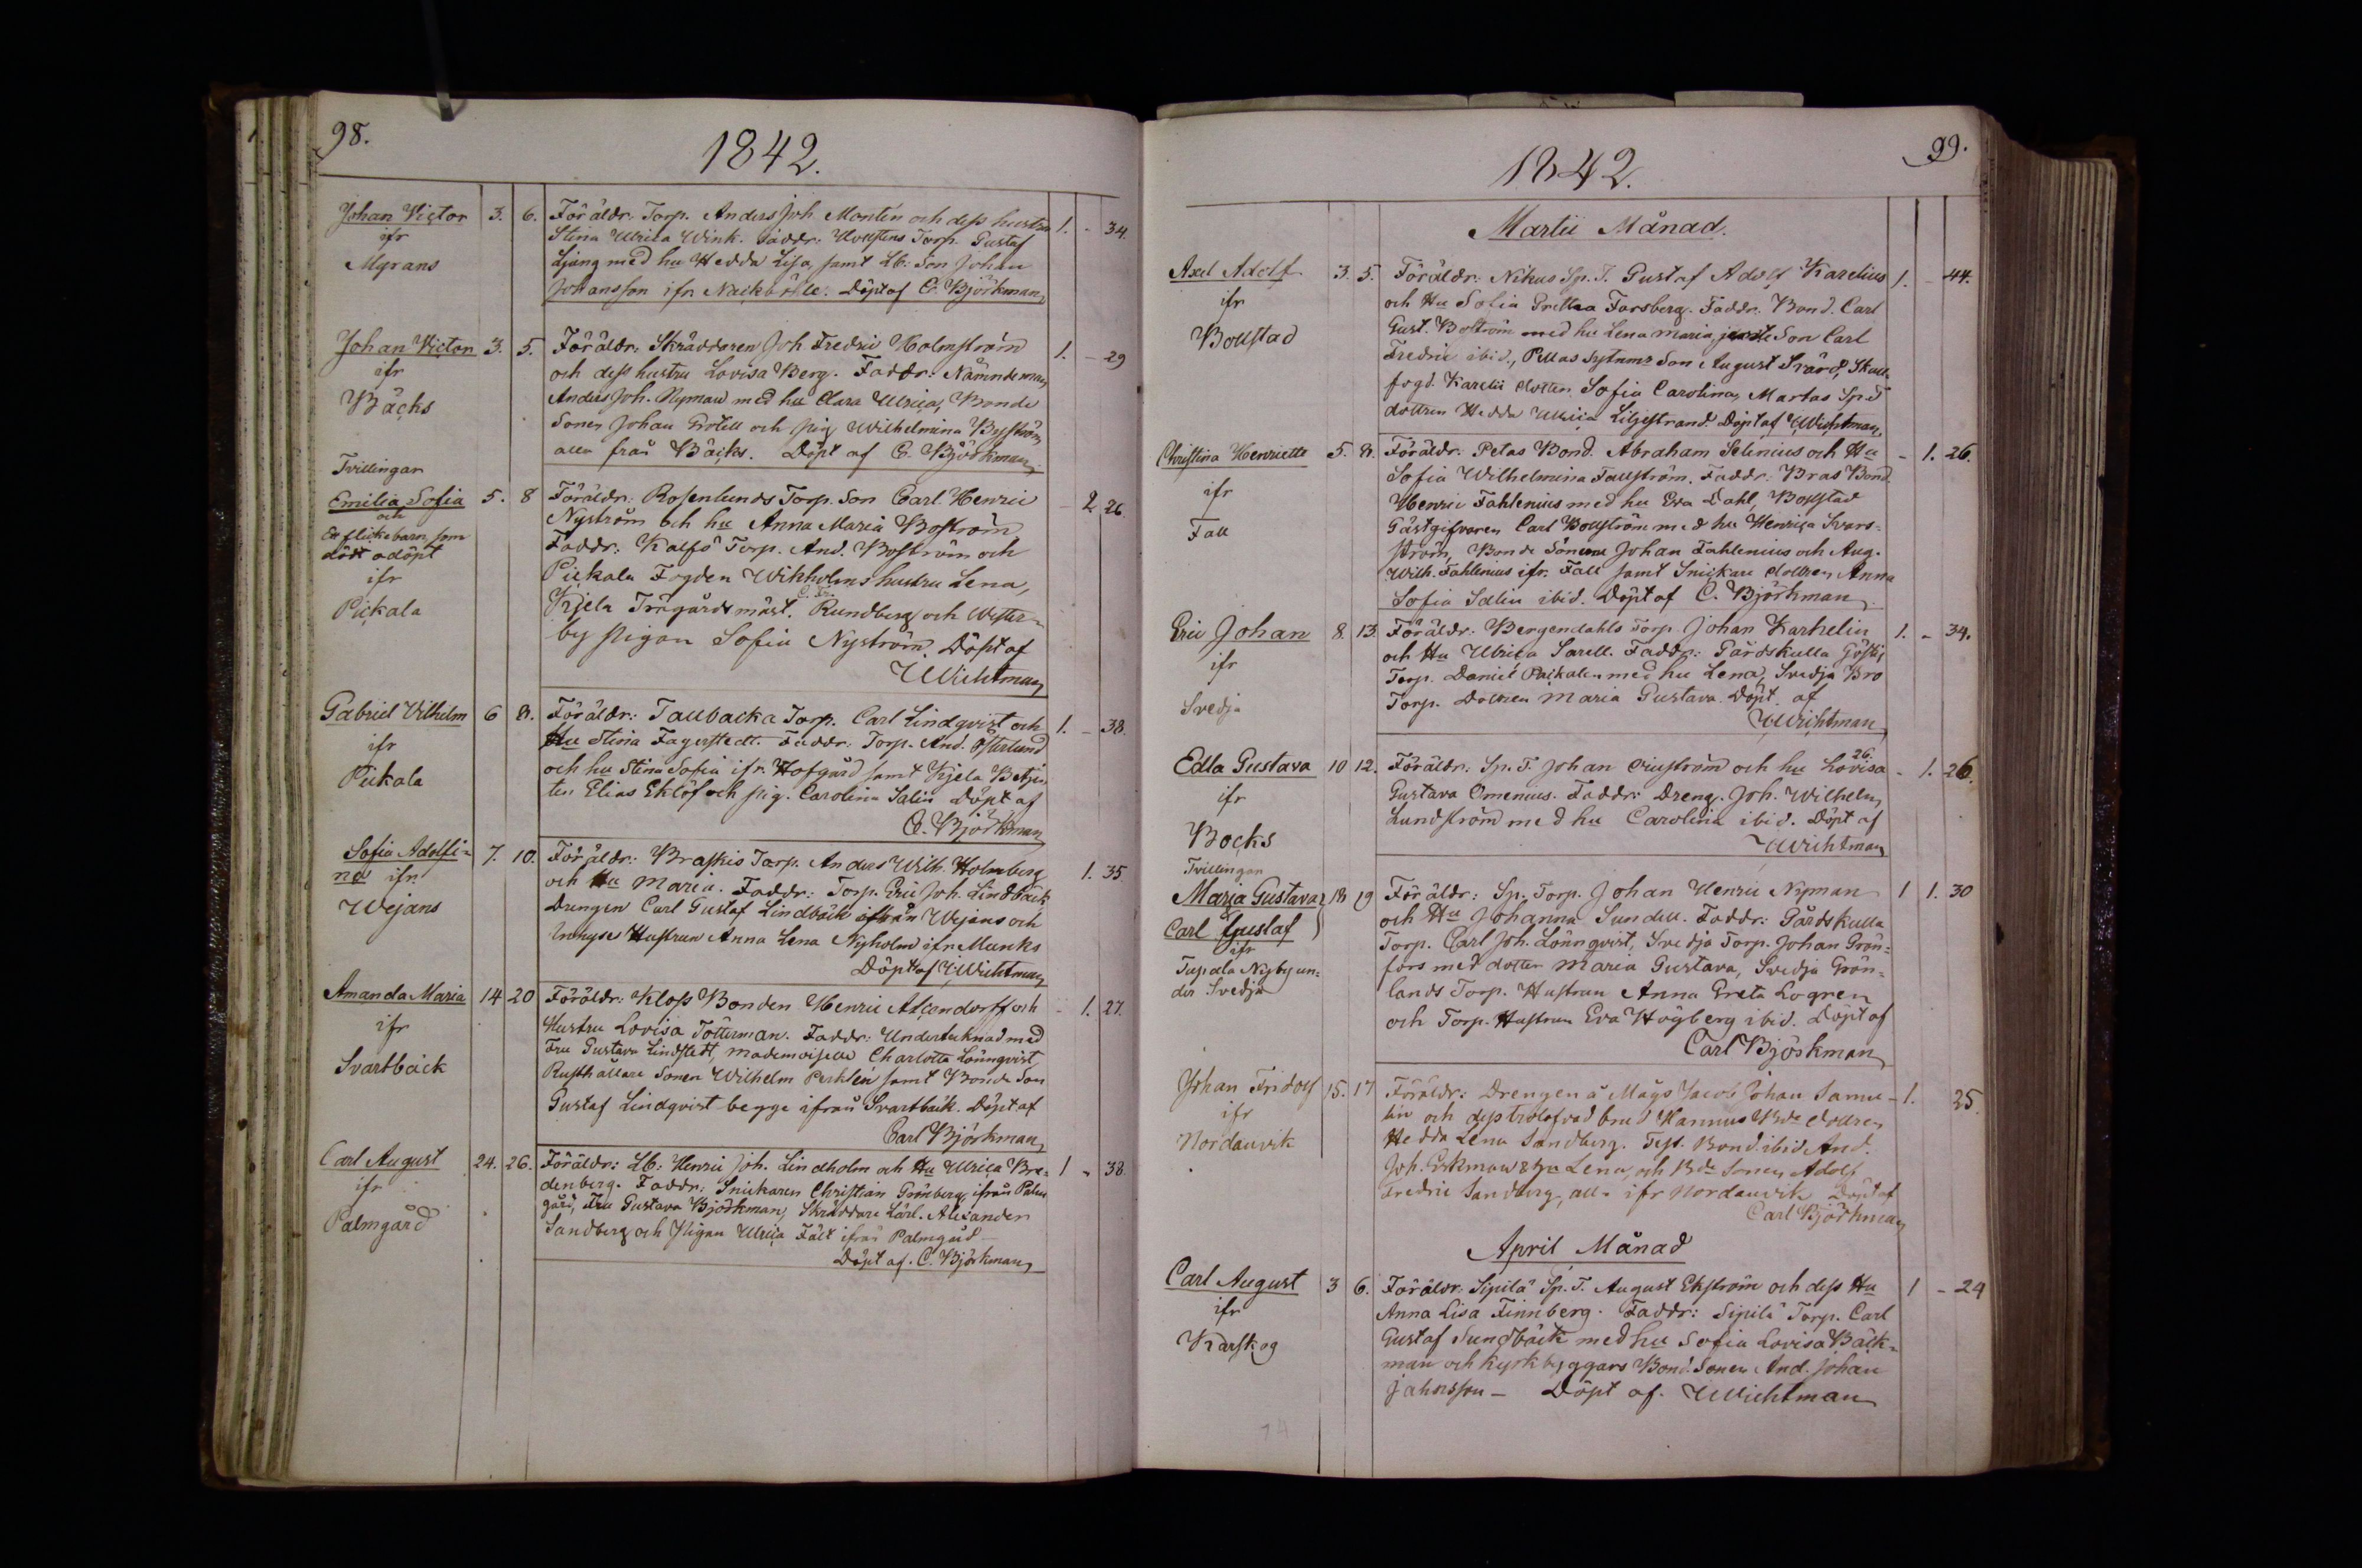 98.
1842.
Johan Victor 3. 6. Föräldr. Torp. Anders Joh. Montén och dess hustru 1. - 34.
ifr Stina Ulrica Wink. Faddr: Torp. Gustaf
Mgrans Ljung med hu Hedda Lisa, samt Lb: Son Johan
Johansson ifr. Döpt af C. Björkman
Johan Victor 3. 5. Föräldr: Skräddaren Joh. Fredric Holmström 1. - 29
ifr och dess hustru Lovisa Berg. Faddr. Nämndeman
Bäcks Anders Joh. Nyman med hu Clara Ulrica, Bonde
Sonen Johan Grotell och pig. Wilhelmina Byström
alla från Bäcks. Döpt af C. Björkman
Tvillingar
Emilia Sofia 5. 8 Föräldr: Rosenlunds Torp. Son Carl Henric - 2 26.
och Nyström och hu Anna Maria Boström
Ett flickebarn, som Faddr: Kalfö Torp. And. Boström och
dött odöpt Pickala Fogden Wikholms hustru Lena,
ifr Kjela Trägårdsmäst. C. Fr. Rundberg och Wester-
Pickala by pigan Sofia Nyström. Döpt af
Wichtman
Gabriel Vilhelm 6 8. Föräldr: Tallbacka Torp. Carl Lindqvist och 1. - 38.
ifr Hu Stina Fagerstedt. Faddr: Torp. And. Österlund
Pickala och hu Stina Sofia ifr. Hofgård samt Kjela Betjen
ten Elias Eklöf och pig. Carolina Salin Döpt af
C. Björkman
Sofia Adolfi- 7. 10. Föräldr: Braskis Torp. Anders Wilh. Holmberg 1. 35
na ifr. och Hu Maria. Faddr: Torp. Eric Joh. Lindbäck
Wejans Drengen Carl Gustaf Lindbäck ifrån Wejans och
Inhyses Hustrun Anna Lena Nyholm ifr. Munks
Döpt af Wichtman
Amanda Maria 14 20 Föräldr: Kloss Bonden Henric Alcondorff och - 1. 27.
ifr Hustru Lovisa Tötterman. Faddr: Undertecknad med
Svartbäck Fru Gustava Lindstedt, Mademoiselle Charlotta Lönnqvist
Rusthållare Sonen Wilhelm Perklén samt Bonde Son
Gustaf Lindqvist begge ifrån Svartbäck. Döpt af
Carl Björkman
Carl August 24. 26. Föräldr: Lb: Henric Joh. Lindholm och Hu Ulrica Bre- 1 - 38
ifr denberg. Faddr. Snickaren Christian Grönberg ifrån Palm
Palmgård gård, Fru Gustava Björkman, Skräddare Lärl. Alexander
Sandberg och Pigan Ulrica Fält ifrån Palmgård -
Döpt af. C. Björkman
99.
1842.
Martii Månad.
Axel Adolf 3. 5. Föräldr: Nikus Sp. T. Gustaf Adolf Karelius 1. - 44.
ifr och Hu Sofia Gretha Forsberg. Faddr. Bond. Carl
Bollstad Gust. Bolström med hu Lena Maria, Son Carl
Fredric ibid., Pellas Sytnings Son August Svärd, Skall
fogd. Karelii dotter Sofia Carolina, Martas Sp.T
dottren Hedda Ulrica Liljestrand. Döpt af Wichtman
Christina Henriette 5. 8. Föräldr: Petas Bond. Abraham Selenius och Hu - 1. 26.
ifr Sofia Wilhelmina Fallström. Faddr: Bras Bond.
Fall Henric Fahlenius med hu Eva Dahl, Bollstad
Gästgifvaren Carl Bollström med hu Henrica Svars-
ström, Bonde Sönerne Johan Fahlenius och Aug.
Wilh. Fahlenius ifr. Fall samt Snickare dottren Anna
Sofia Salin ibid. Döpt af C. Björkman
Eric Johan 8. 13. Föräldr: Bergendahls Torp. Johan Karhelin 1. - 34.
ifr och Hu Ulrica Sarell. Faddr: Gårdskulla
Svedja Torp. Daniel Packalen med hu Lena, Svedja Bro
Torp. Dottren Maria Gustava. Döpt af
Wichtman
Edla Gustava 10 12. Föräldr: Sp. T. Johan och hu Lovisa 26. - 1. 26.
ifr Gustava Omenius. Faddr: Dreng. Joh. Wilhelm
Bocks Lundström med hu Carolina ibid. Döpt af
Wichtman
Tvillingar
Maria Gustava 18 19 Föräldr: Sp. Torp. Johan Henric Nyman 1 1. 30
& och Hu Johanna Sundell. Faddr: Gårdskulla
Carl Gustaf Torp. Carl Joh. Lönnqvist, Svedja Torp. Johan Grön-
ifr fors med dotter Maria Gustava, Svedja Grön-
Tupala Nyby un- lands Torp. Hustrun Anna Greta Logren
der Svedja och Torp. Hustrun Eva Högberg ibid. Döpt af
Carl Björkman
Johan Fridolf 15. 17 Föräldr: Drengen å Mågs Jacob Johan Samu- - 1. 25.
ifr lin och dess trolofvad brud Hannus Bde dottren
Nordanvik Hedda Lena Sandberg. Test. Bond. ibid And.
Joh. Eskman & hu Lena, och Bde Sonen Adolf
Fredric Sandberg, alla ifr Nordanvik Döpt af
Carl Björkman
April Månad
Carl August 3 6. Föräldr. Sipilä Sp. T. August Ekström och dess Hu 1 - 24
ifr Anna Lisa Finnberg. Faddr: Sipilä Torp. Carl
Karskog Gustaf Sundbäck med hu Sofia Lovisa Bäck-
man och Kyrkbyggars Bond. Sonen And. Johan
Johnsson - Döpt af. Wichtman